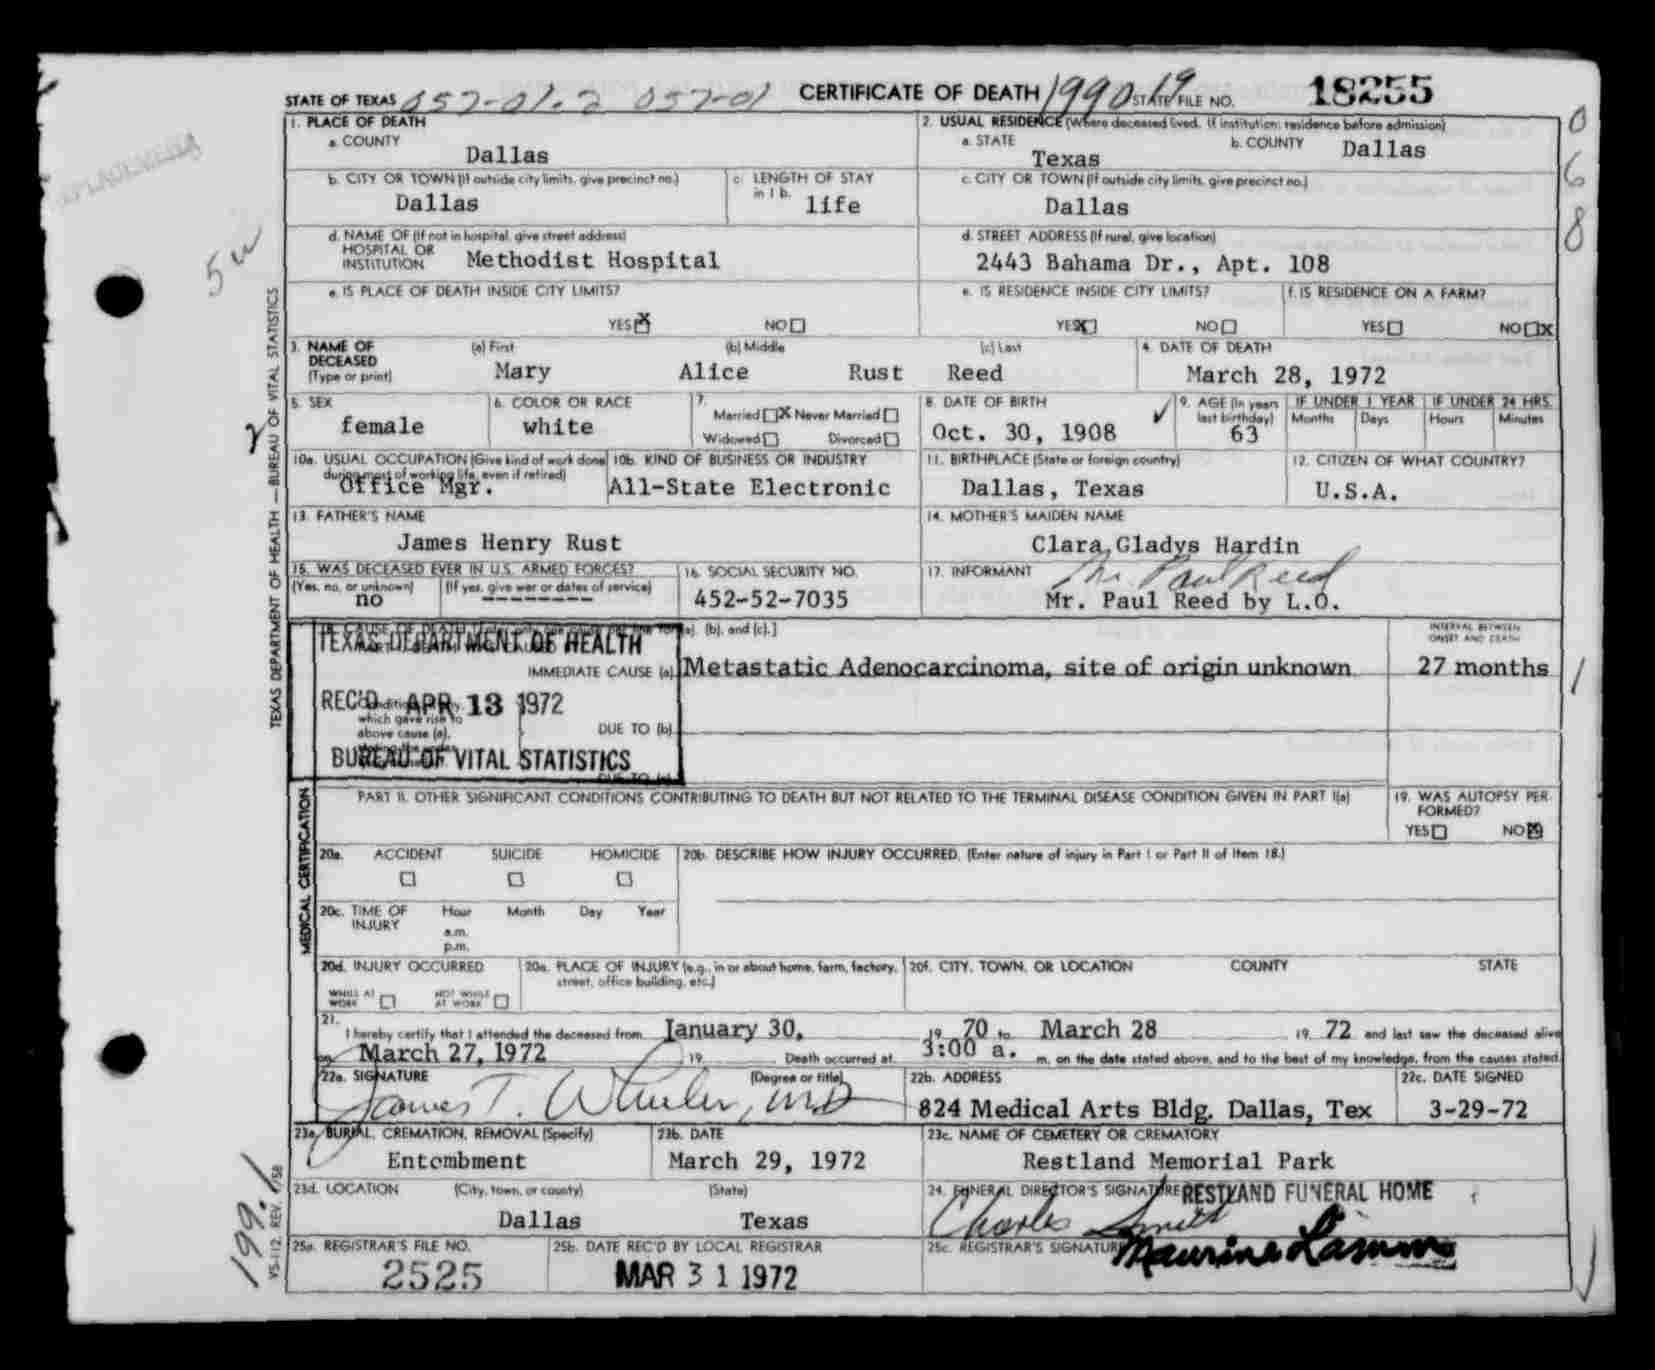 STATE OF TEXAS 057-01.2 057-01 CERTIFICATE OF DEATH 1990 19 STATE FILE NO. 18255
1. PLACE OF DEATH
a. COUNTY
Dallas
2. USUAL RESIDENCE (Where deceased lived. If institution: residence before admission)
a. STATE
Texas
b. COUNTY Dallas
b. CITY OR TOWN (If outside city limits, give precinct no.)
Dallas
c. LENGTH OF STAY
in 1 b.
life
c. CITY OR TOWN (If outside city limits, give precinct no.)
Dallas
d. NAME OF (If not in hospital, give street address)
HOSPITAL OR
INSTITUTION Methodist Hospital
d. STREET ADDRESS (If rural, give location)
2443 Bahama Dr., Apt. 108
e. IS PLACE OF DEATH INSIDE CITY LIMITS?
YES X NO
e. IS RESIDENCE INSIDE CITY LIMITS?
YES X NO
f. IS RESIDENCE ON A FARM?
YES NO X
3. NAME OF
DECEASED
(Type or print)
(a) First (b) Middle (c) Last
Mary Alice Rust Reed
4. DATE OF DEATH
March 28, 1972
5. SEX
female
6. COLOR OR RACE
white
7.
Married X Never Married
Widowed Divorced
8. DATE OF BIRTH
Oct. 30, 1908
9. AGE (In years
last birthday)
63
IF UNDER 1 YEAR
Months Days
IF UNDER 24 HRS.
Hours Minutes
10a. USUAL OCCUPATION (Give kind of work done
during most of working life, even if retired)
Office Mgr.
10b. KIND OF BUSINESS OR INDUSTRY
All-State Electronic
11. BIRTHPLACE (State or foreign country)
Dallas, Texas
12. CITIZEN OF WHAT COUNTRY?
U.S.A.
13. FATHER'S NAME
James Henry Rust
14. MOTHER'S MAIDEN NAME
Clara Gladys Hardin
15. WAS DECEASED EVER IN U.S. ARMED FORCES?
(Yes, no, or unknown) (If yes, give war or dates of service)
no --------
16. SOCIAL SECURITY NO.
452-52-7035
17. INFORMANT Mr. Paul Reed
Mr. Paul Reed by L.O.
(b), and (c).]
TEXAS DEPARTMENT OF HEALTH
REC'D APR 13 1972
BUREAU OF VITAL STATISTICS
IMMEDIATE CAUSE (a) Metastatic Adenocarcinoma, site of origin unknown
INTERVAL BETWEEN
ONSET AND DEATH
27 months
which gave rise to
above cause (a),
DUE TO (b)
DUE TO (c)
PART II. OTHER SIGNIFICANT CONDITIONS CONTRIBUTING TO DEATH BUT NOT RELATED TO THE TERMINAL DISEASE CONDITION GIVEN IN PART I(a)
19. WAS AUTOPSY PER-
FORMED?
YES NO X
20a. ACCIDENT SUICIDE HOMICIDE
20b. DESCRIBE HOW INJURY OCCURRED. (Enter nature of injury in Part I or Part II of Item 18.)
20c. TIME OF
INJURY
Hour Month Day Year
a.m.
p.m.
20d. INJURY OCCURRED
WHILE AT
WORK
NOT WHILE
AT WORK
20e. PLACE OF INJURY (e.g., in or about home, farm, factory,
street, office building, etc.)
20f. CITY, TOWN, OR LOCATION COUNTY STATE
21.
I hereby certify that I attended the deceased from January 30, 19 70 to March 28 19 72 and last saw the deceased alive
on March 27, 1972 19 Death occurred at 3:00 a. m. on the date stated above, and to the best of my knowledge, from the causes stated.
22a. SIGNATURE (Degree or title)
James T. Wheeler, M.D.
22b. ADDRESS
824 Medical Arts Bldg. Dallas, Tex
22c. DATE SIGNED
3-29-72
23a. BURIAL, CREMATION, REMOVAL (Specify)
Entombment
23b. DATE
March 29, 1972
23c. NAME OF CEMETERY OR CREMATORY
Restland Memorial Park
23d. LOCATION (City, town, or county) (State)
Dallas Texas
24. FUNERAL DIRECTOR'S SIGNATURE RESTLAND FUNERAL HOME
Charles Smith
25a. REGISTRAR'S FILE NO.
2525
25b. DATE REC'D BY LOCAL REGISTRAR
MAR 31 1972
25c. REGISTRAR'S SIGNATURE Maurine Lamm
TEXAS DEPARTMENT OF HEALTH — BUREAU OF VITAL STATISTICS
MEDICAL CERTIFICATION
VS-112, REV. 1/58
199.1
5
2
0
6
8
1